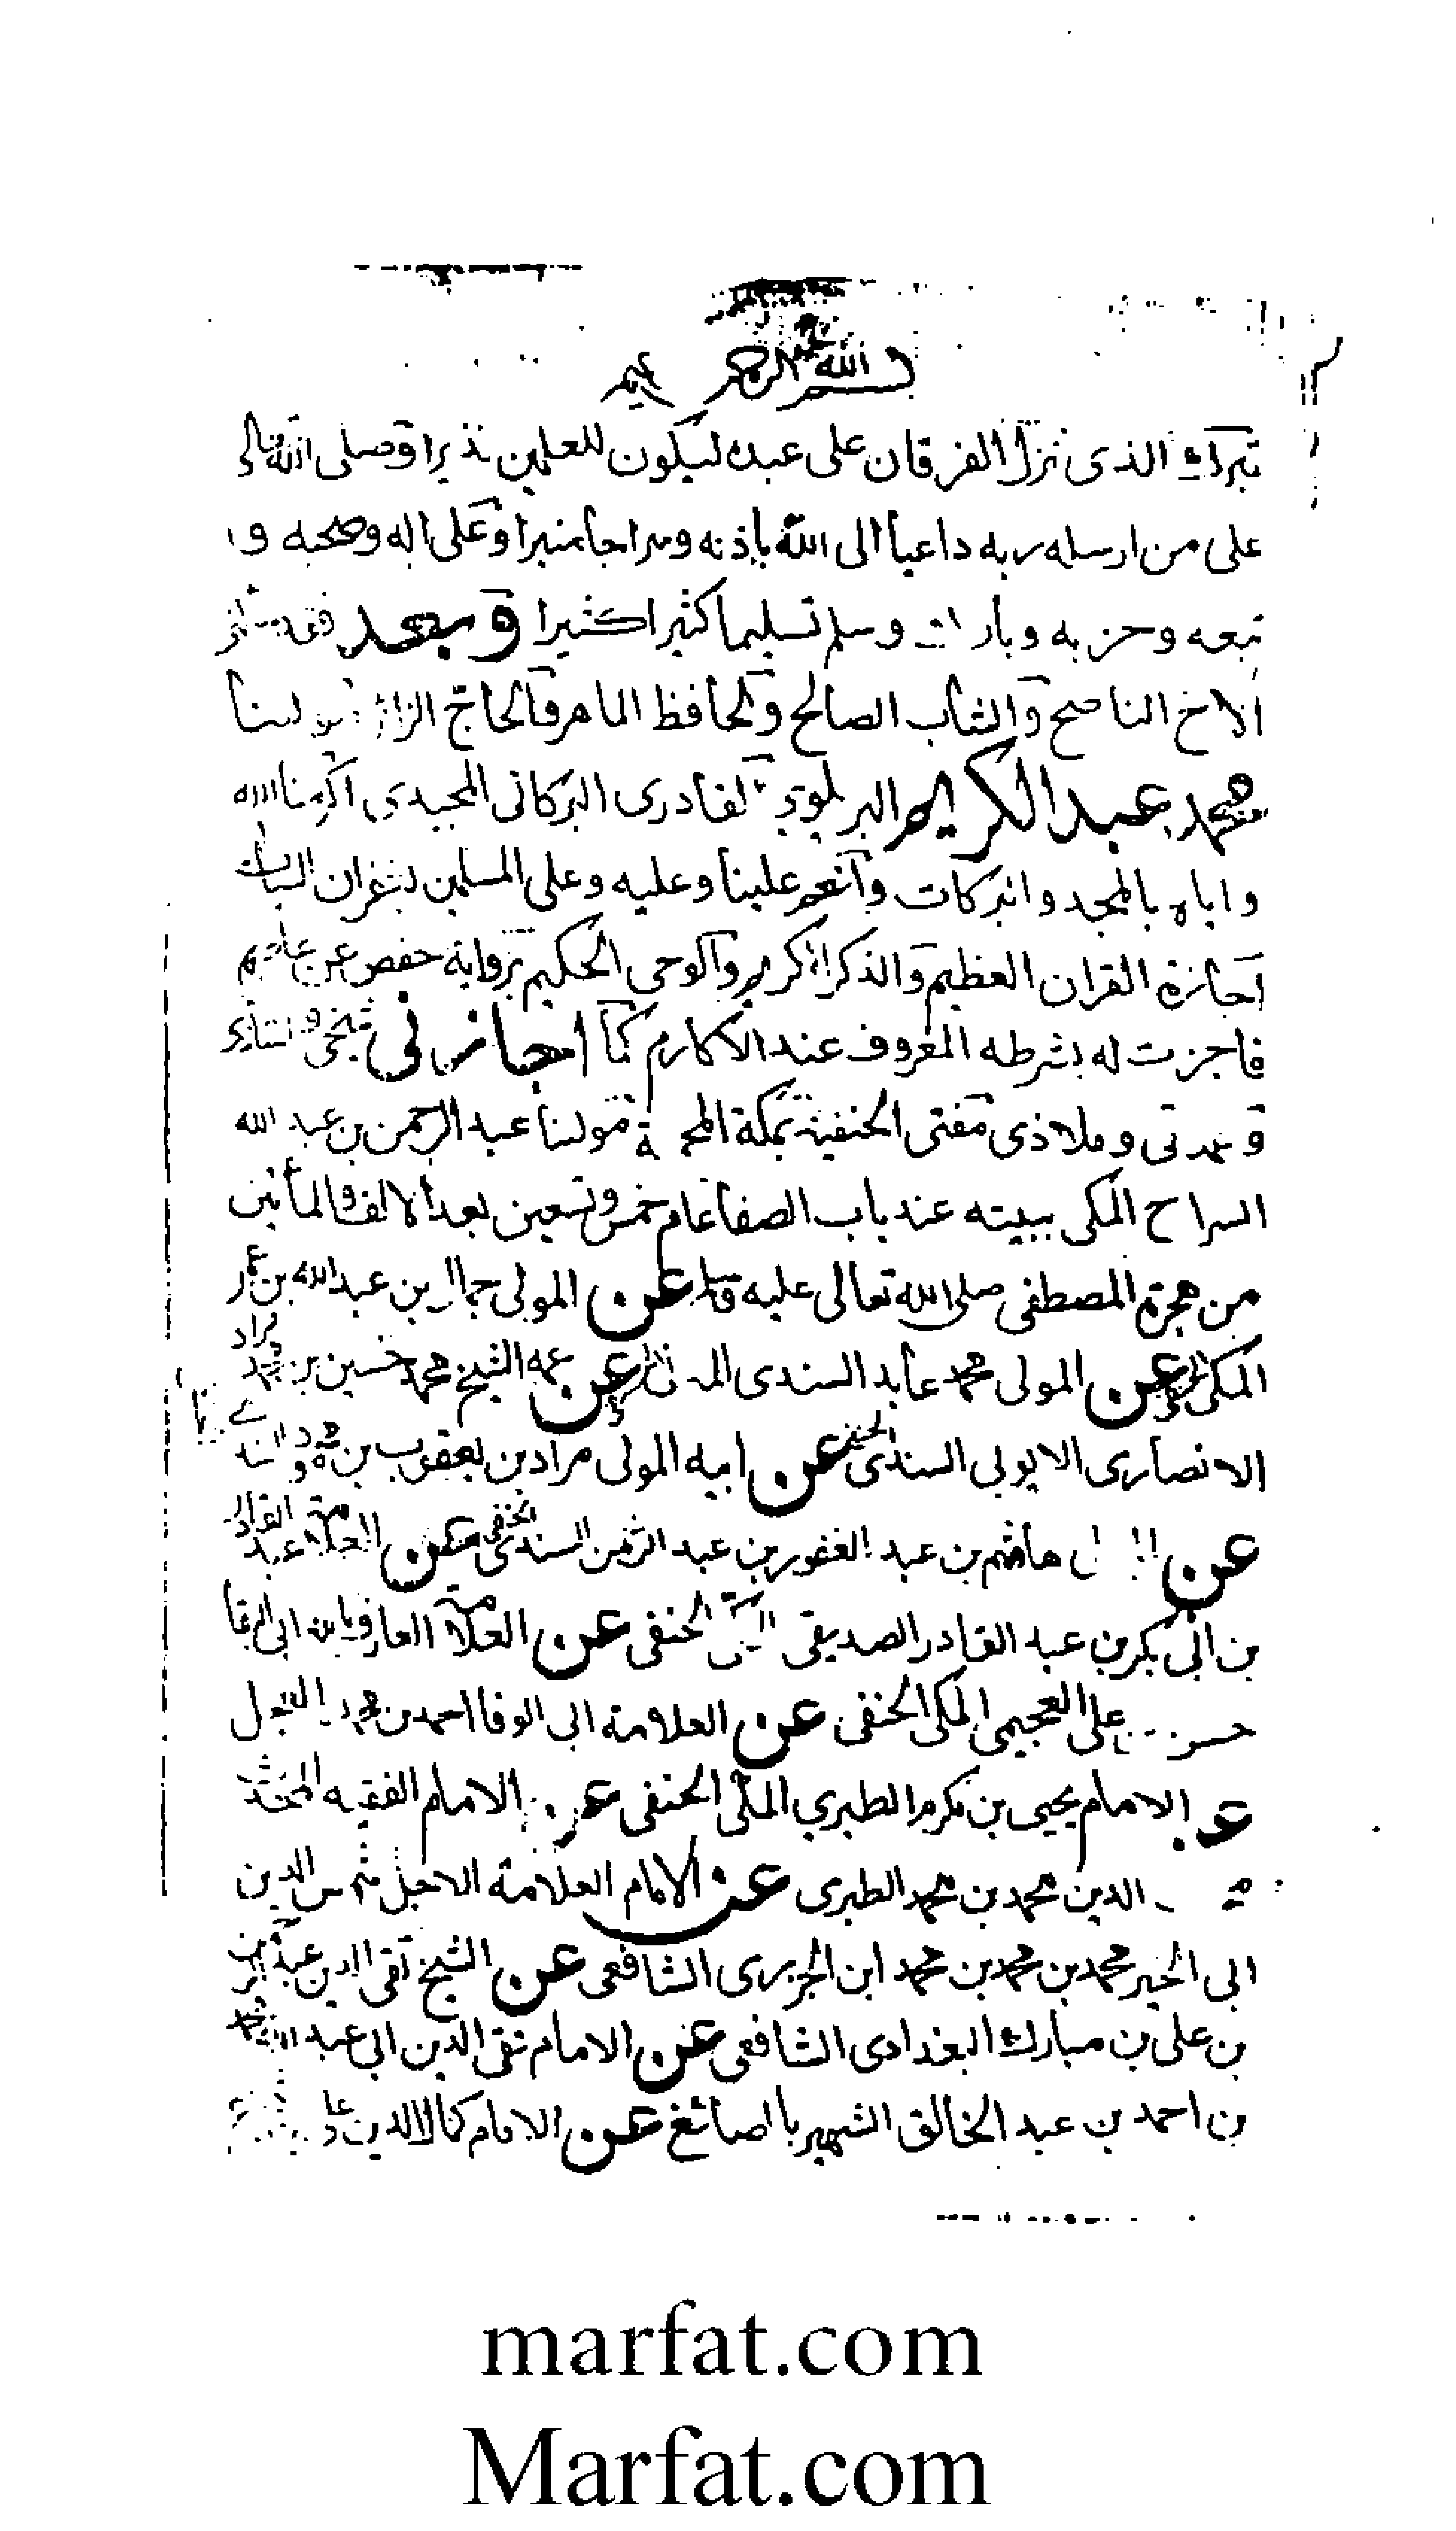 بسم الله الرحمن الرحيم
تبرك الذى نزل الفرقان على عبده ليكون للعلمين نذيرا وصلى الله تعالى
على من ارسله ربه داعيا الى الله باذنه وسراجا منيرا وعلى اله وصحبه و
تبعه وحزبه وبارك وسلم تسليما كثيرا كثيرا وبعد فقد
الاخ الناصح والشاب الصالح والحافظ الماهر والحاج الزائر مولينا
محمد عبد الكريم البريلوي القادرى البركاتى المجيدى اكرمنا الله
واياه بالمجد والبركات وانعم علينا وعليه وعلى المسلمين بغفران السيات
اجازة القران العظيم والذكر الكريم والوحى الحكيم برواية حفص عن عاصم
فاجزت له بشرطه المعروف عند الاكارم كما اجازنى شيخى و
وعمدتى وملاذى مفتى الحنفية بمكة المحمية مولينا عبد الرحمن بن عبد الله
السراج المكى ببيته عند باب الصفا عام خمس وتسعين بعد الالف والمأتين
من هجرة المصطفى صلى الله تعالى عليه وسلم عن المولى جمال بن عبد الله بن عمر
المكى عن المولى محمد عابد السندى المدنى عن عمه الشيخ محمد حسين بن محمد مراد
الانصارى الايوبى السندى الحنفى عن ابيه المولى مراد بن يعقوب بن محمود السندے
عن المولى هاشم بن عبد الغفور بن عبد الرحمن السندى الحنفى عن العلامة عبد القادر
بن ابى بكر بن عبد القادر الصديقى المكى الحنفى عن العلامة العارف بالله ابى البقا
حسن بن على العجيمى المكى الحنفى عن العلامة ابى الوفا احمد بن محمد العجل
عن الامام يحيى بن مكرم الطبري المكى الحنفى عن الامام الفقيه المحدث
الدين محمد بن محمد الطبرى عن الامام العلامة الاجل شمس الدين
ابى الخير محمد بن محمد بن محمد ابن الجزرى الشافعى عن الشيخ تقى الدين عبد الرحمن
بن على بن مبارك البغدادى الشافعى عن الامام تقى الدين ابى عبد الله محمد
بن احمد بن عبد الخالق الشهير بالصائغ عن الامام كمال الدين
marfat.com
Marfat.com